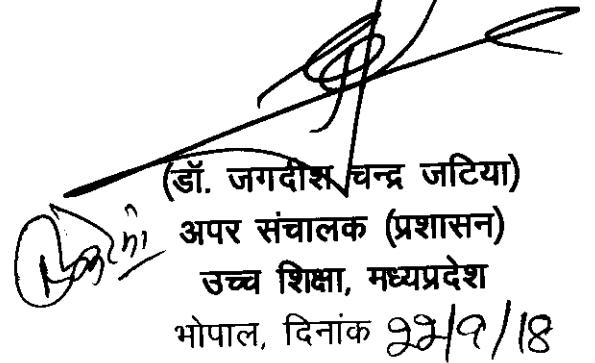 (डॉ. जगदीश चन्द्र जटिया)
अपर संचालक (प्रशासन)
उच्च शिक्षा, मध्यप्रदेश
भोपाल, दिनांक 22/9/18